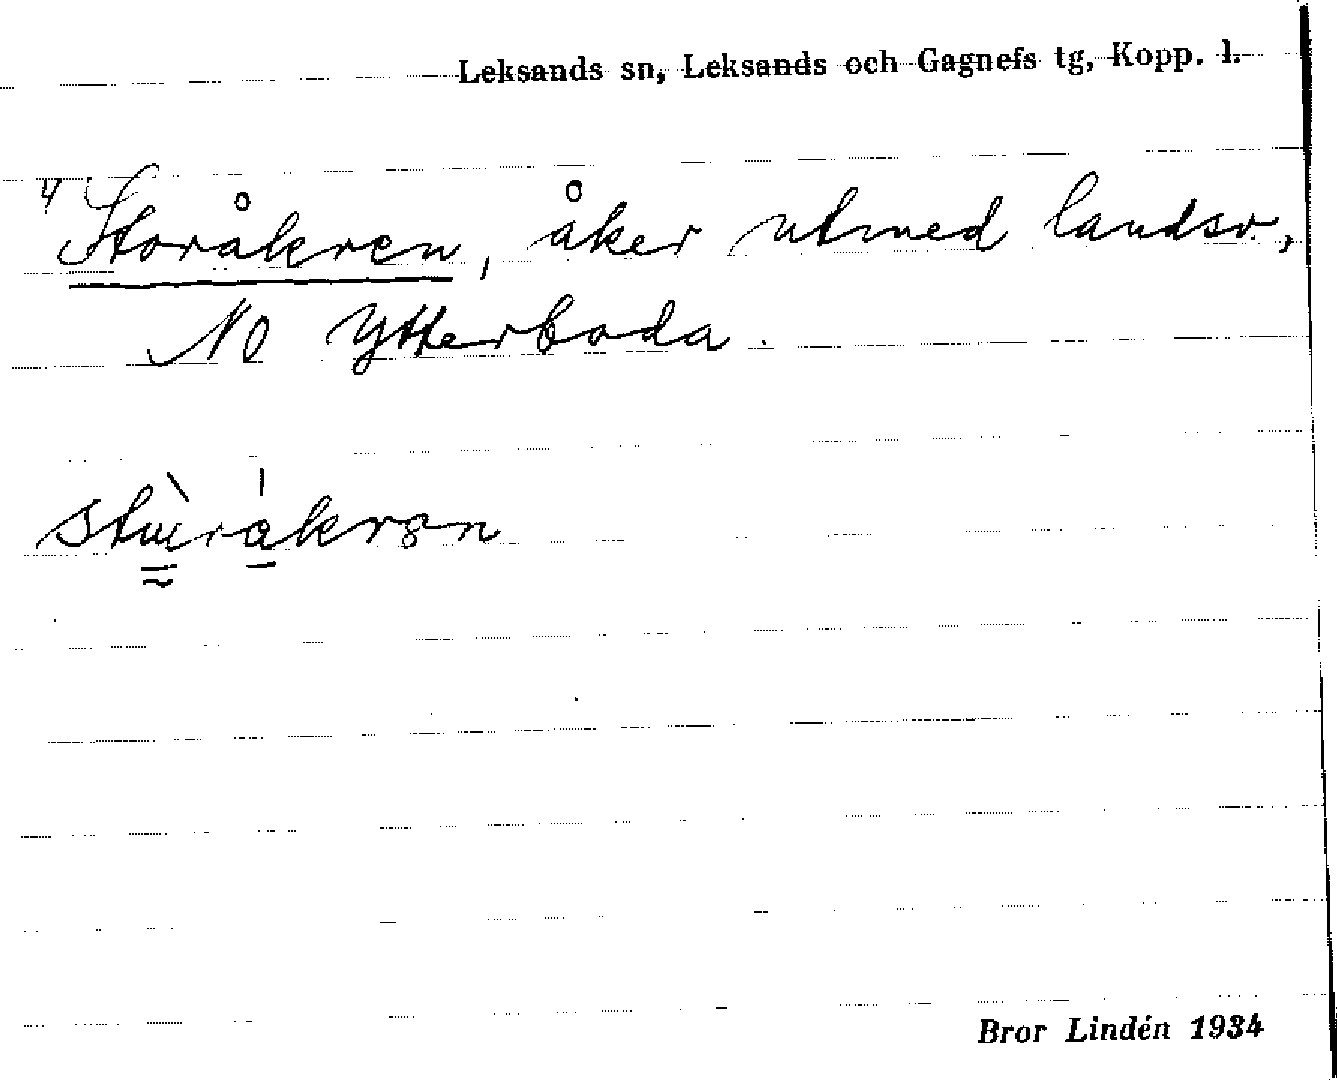 Leksands sn, Leksands och Gagnefs tg, Kopp. l.
4) Storåkren, åker utmed landsv.,
NO Ytterboda.
Bror Lindén 1934